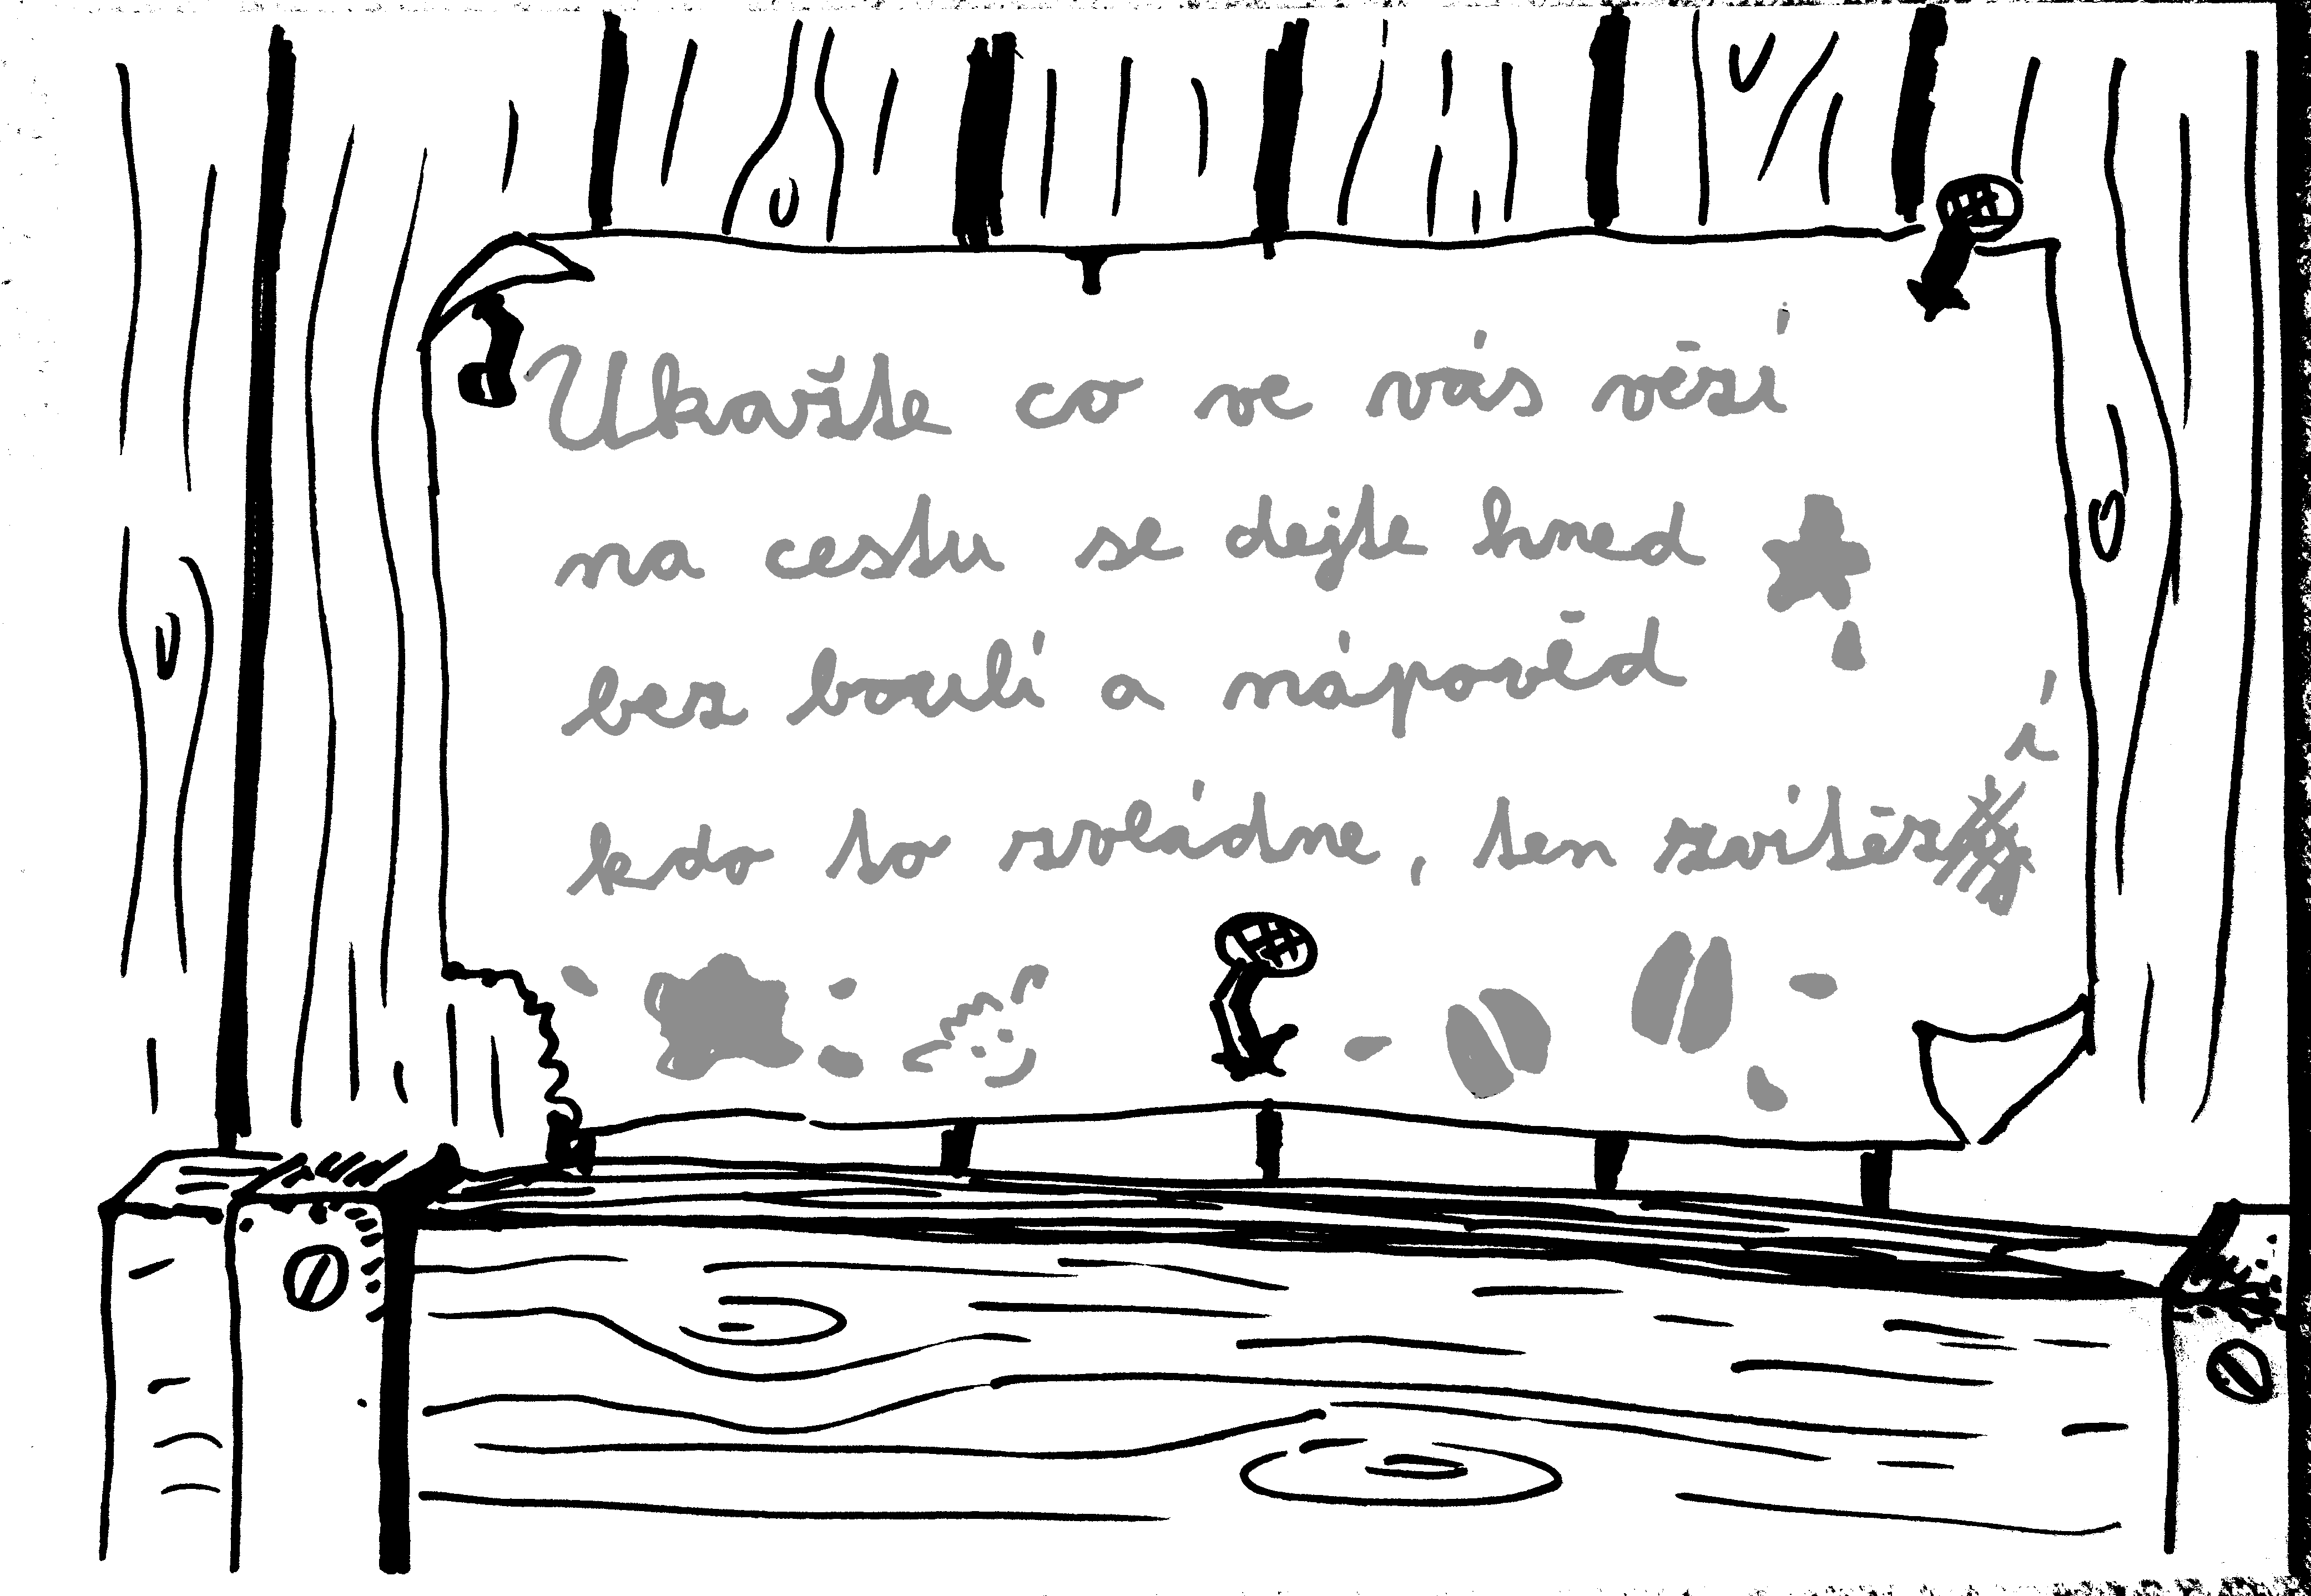 Ukažte co ve vás vězí
na cestu se dejte hned
bez boulí a nápověd
kdo to zvládne, ten zvítězí